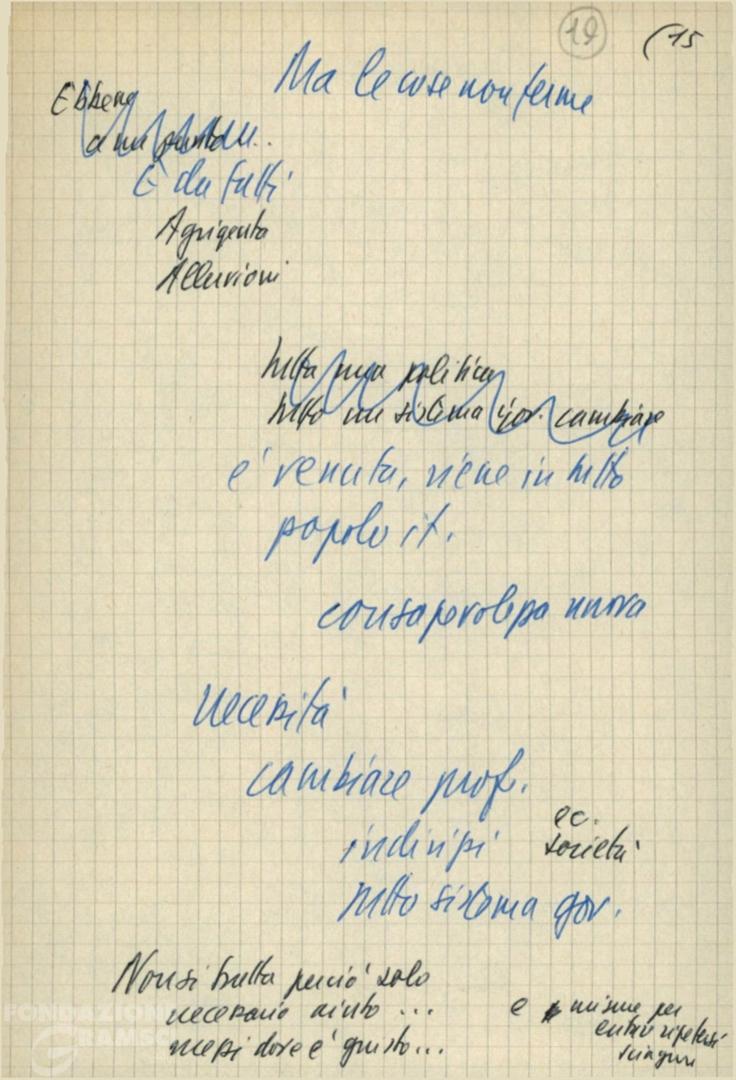 19
(15
Ma le cose non ferme
Ebbene
a un punto...
E da fatti
Agrigento
Alluvioni
tutta una politica
tutto un sistema gov. cambiare
e' venuta, viene in tutto
popolo it.
consapevolezza nuova
necessità
cambiare prof.
indirizzi ec. società
tutto sistema gov.
Non si tratta perciò solo
necessario aiuto ... e misure per
mezzi dove è giusto... evitar ripetersi
sciagure
FONDAZIONE
GRAMSCI